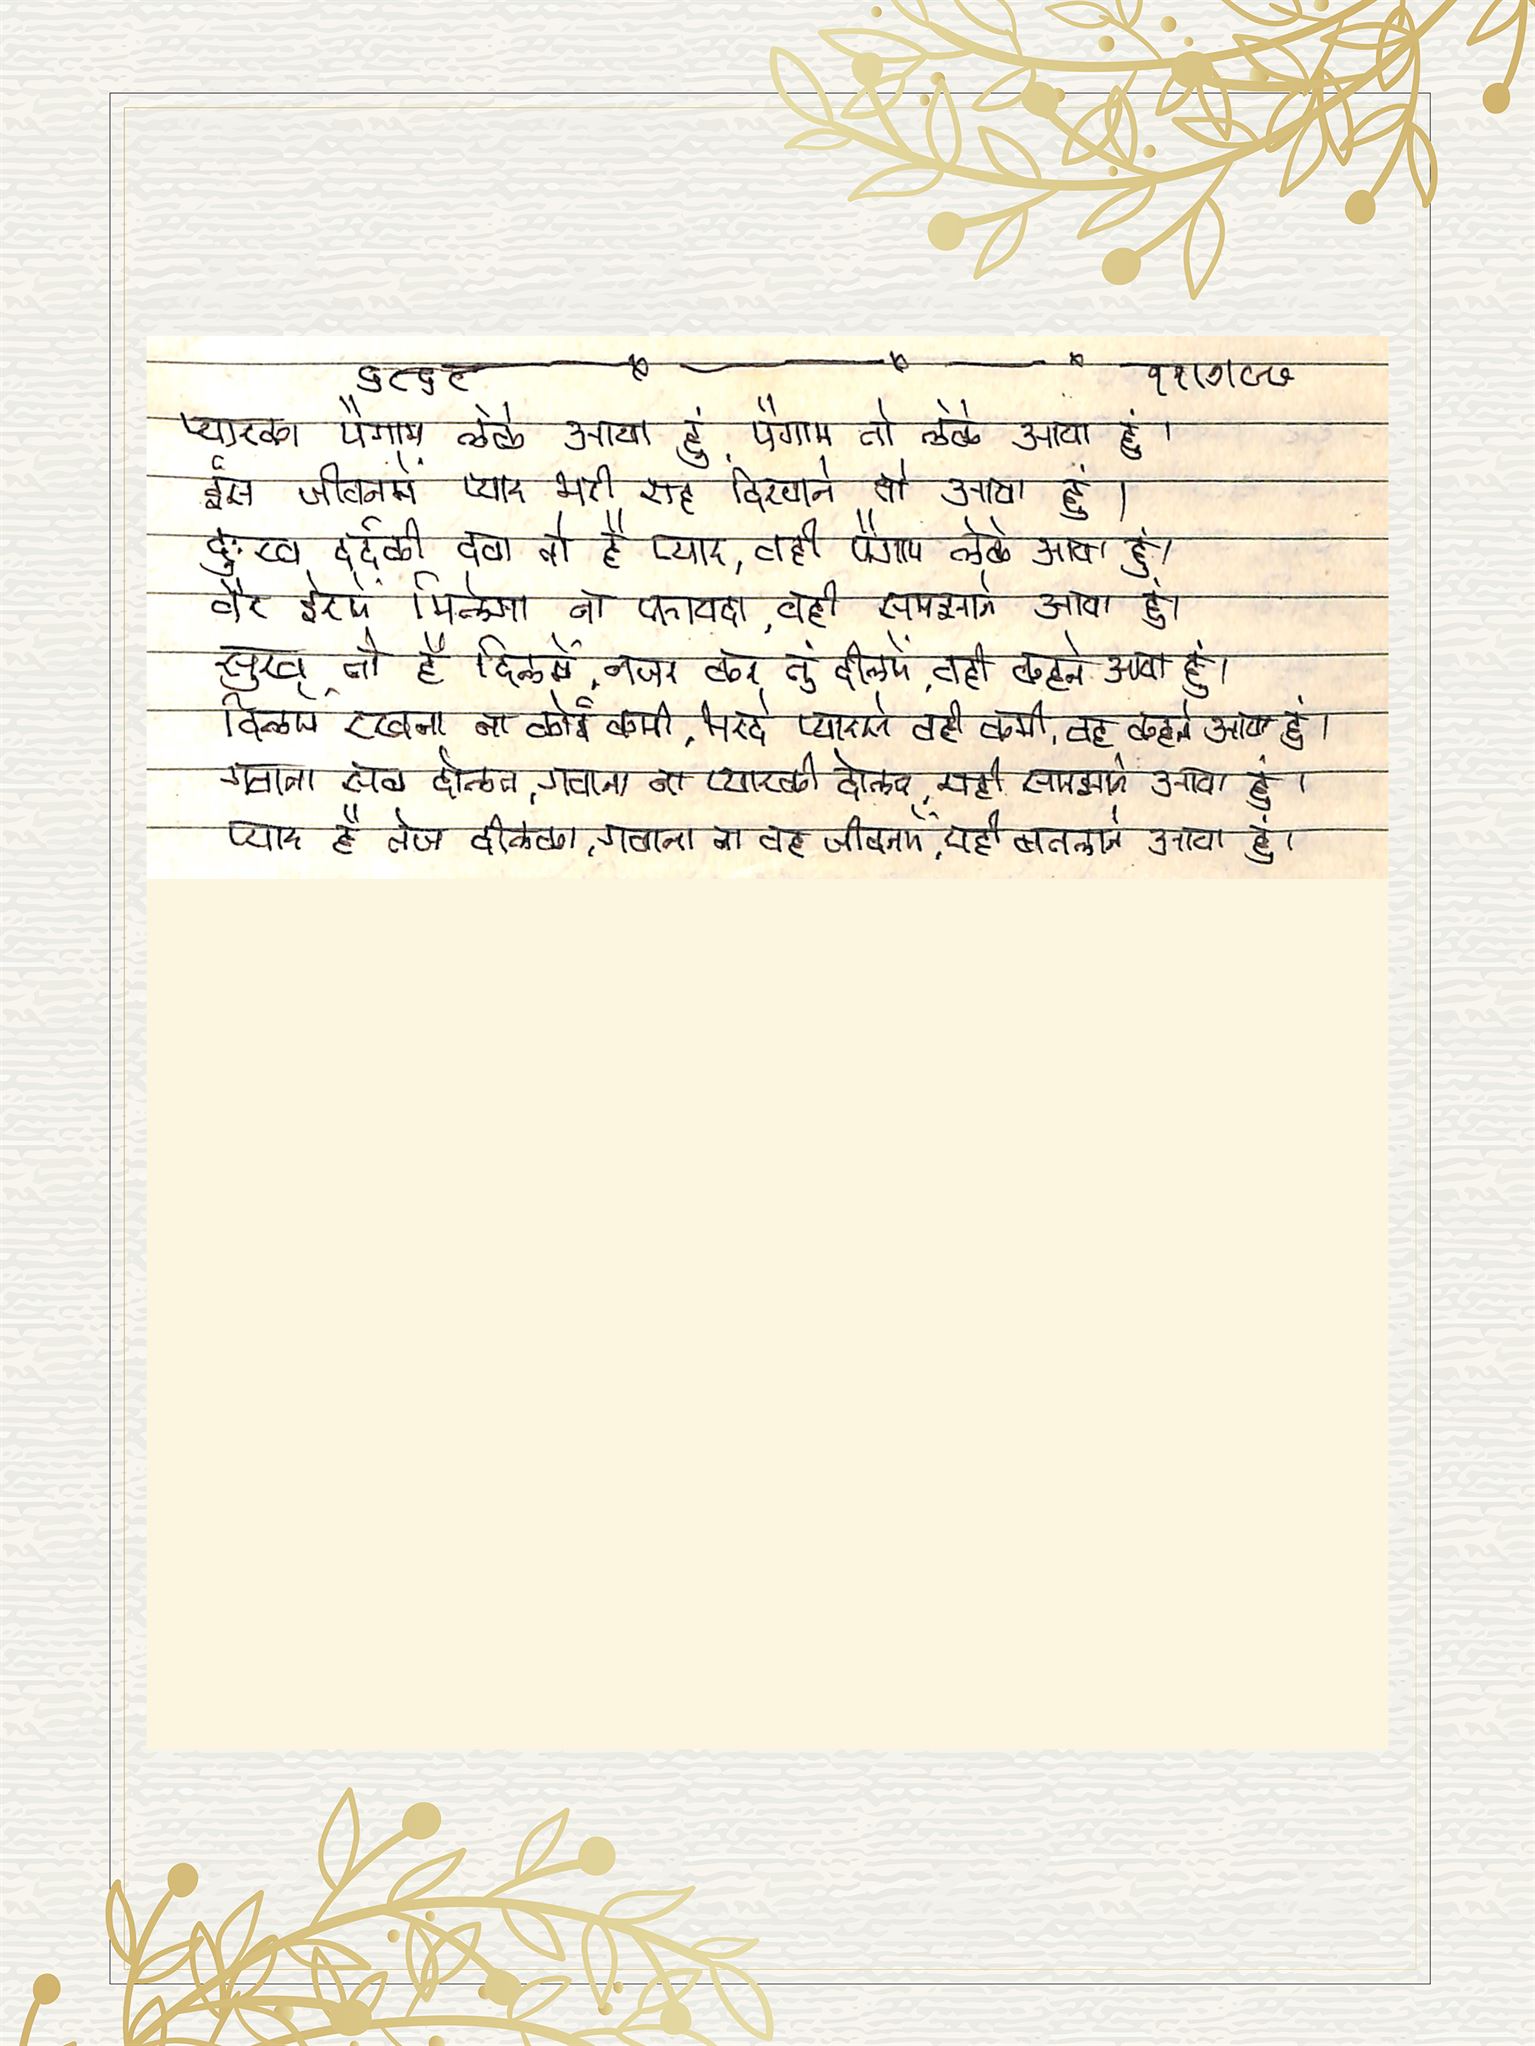 प्यारका पैगाम लेके आया हुं, पैगाम तो लेके आया हुं।
ईस जीवनमें प्यार भरी राह दिखाने तो आया हुं।
दुःख दर्दकी दवा तो है प्यार, वही पैगाम लेके आया हुं।
वैर झेरमें मिलेगा ना फायदा, वही समझाने आया हुं।
सुख तो है दिलमें, नजर कर तुं दीलमें, वही कहने आया हुं।
दिलमें रखना ना कोई कमी, भरदे प्यारसे वही कमी, वह कहने आया हुं।
गवाना सब दोलत, गवाना ना प्यारकी दोलत, यही समझाने आया हुं।
प्यार है तेज दीलका, गवाना ना वह जीवनमें, यही बतलाने आया हुं।